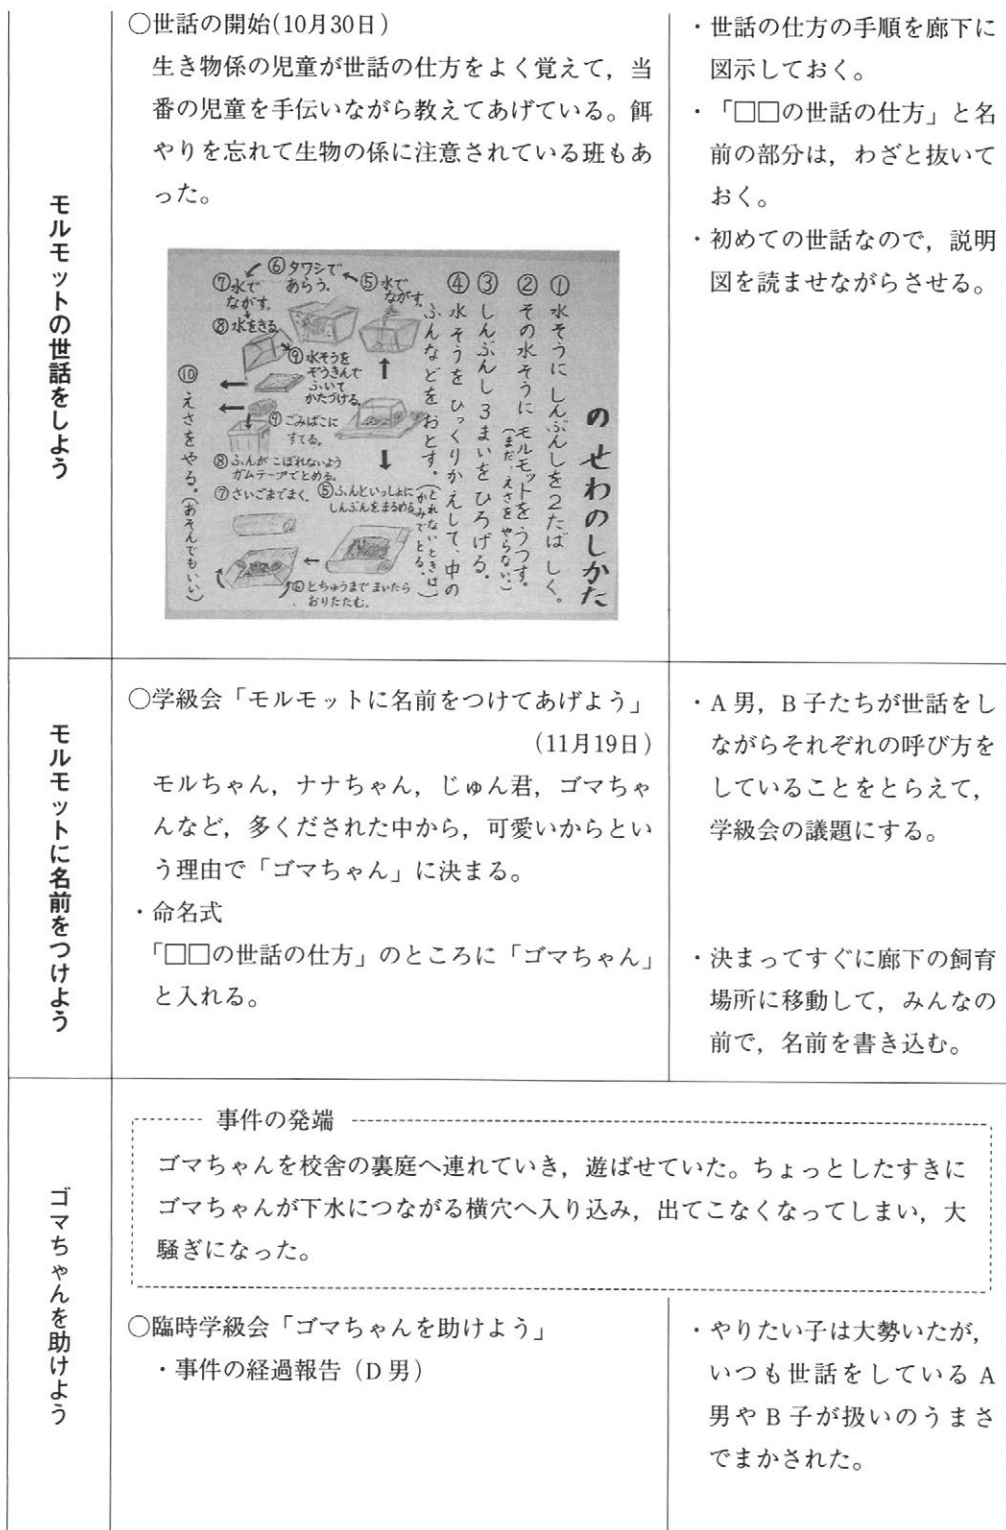 モルモットの世話をしよう
○世話の開始(10月30日)
生き物係の児童が世話の仕方をよく覚えて，当
番の児童を手伝いながら教えてあげている。餌
やりを忘れて生物の係に注意されている班もあ
った。
のせわのしかた
①水そうに しんぶんしを2たば しく。
②その水そうに モルモットを うつす。
(まだ、えさを やらない。)
③しんぶんし3まいを ひろげる。
④水そうを ひっくりかえして、中の
ふんなどを おとす。
(とれないときは、かみでとる。)
⑤水で
ながす。
⑥タワシで
あらう。
⑦水で
ながす。
⑧水をきる。
⑨水そうを
ぞうきんで
ふいて
かたづける。
⑤ふんといっしょに
しんぶんをまるめる。
⑥とちゅうまで まいたら
おりたたむ。
⑦さいごまでまく。
⑧ふんが こぼれないよう
ガムテープでとめる。
⑨ごみばこに
すてる。
⑩えさをやる。(あそんでもいい)
・世話の仕方の手順を廊下に
図示しておく。
・「□□の世話の仕方」と名
前の部分は，わざと抜いて
おく。
・初めての世話なので，説明
図を読ませながらさせる。
モルモットに名前をつけよう
○学級会「モルモットに名前をつけてあげよう」
(11月19日)
モルちゃん，ナナちゃん，じゅん君，ゴマちゃ
んなど，多くだされた中から，可愛いからとい
う理由で「ゴマちゃん」に決まる。
・命名式
「□□の世話の仕方」のところに「ゴマちゃん」
と入れる。
・A男，B子たちが世話をし
ながらそれぞれの呼び方を
していることをとらえて，
学級会の議題にする。
・決まってすぐに廊下の飼育
場所に移動して，みんなの
前で，名前を書き込む。
ゴマちゃんを助けよう
事件の発端
ゴマちゃんを校舎の裏庭へ連れていき，遊ばせていた。ちょっとしたすきに
ゴマちゃんが下水につながる横穴へ入り込み，出てこなくなってしまい，大
騒ぎになった。
○臨時学級会「ゴマちゃんを助けよう」
・事件の経過報告（D男）
・やりたい子は大勢いたが，
いつも世話をしているA
男やB子が扱いのうまさ
でまかされた。